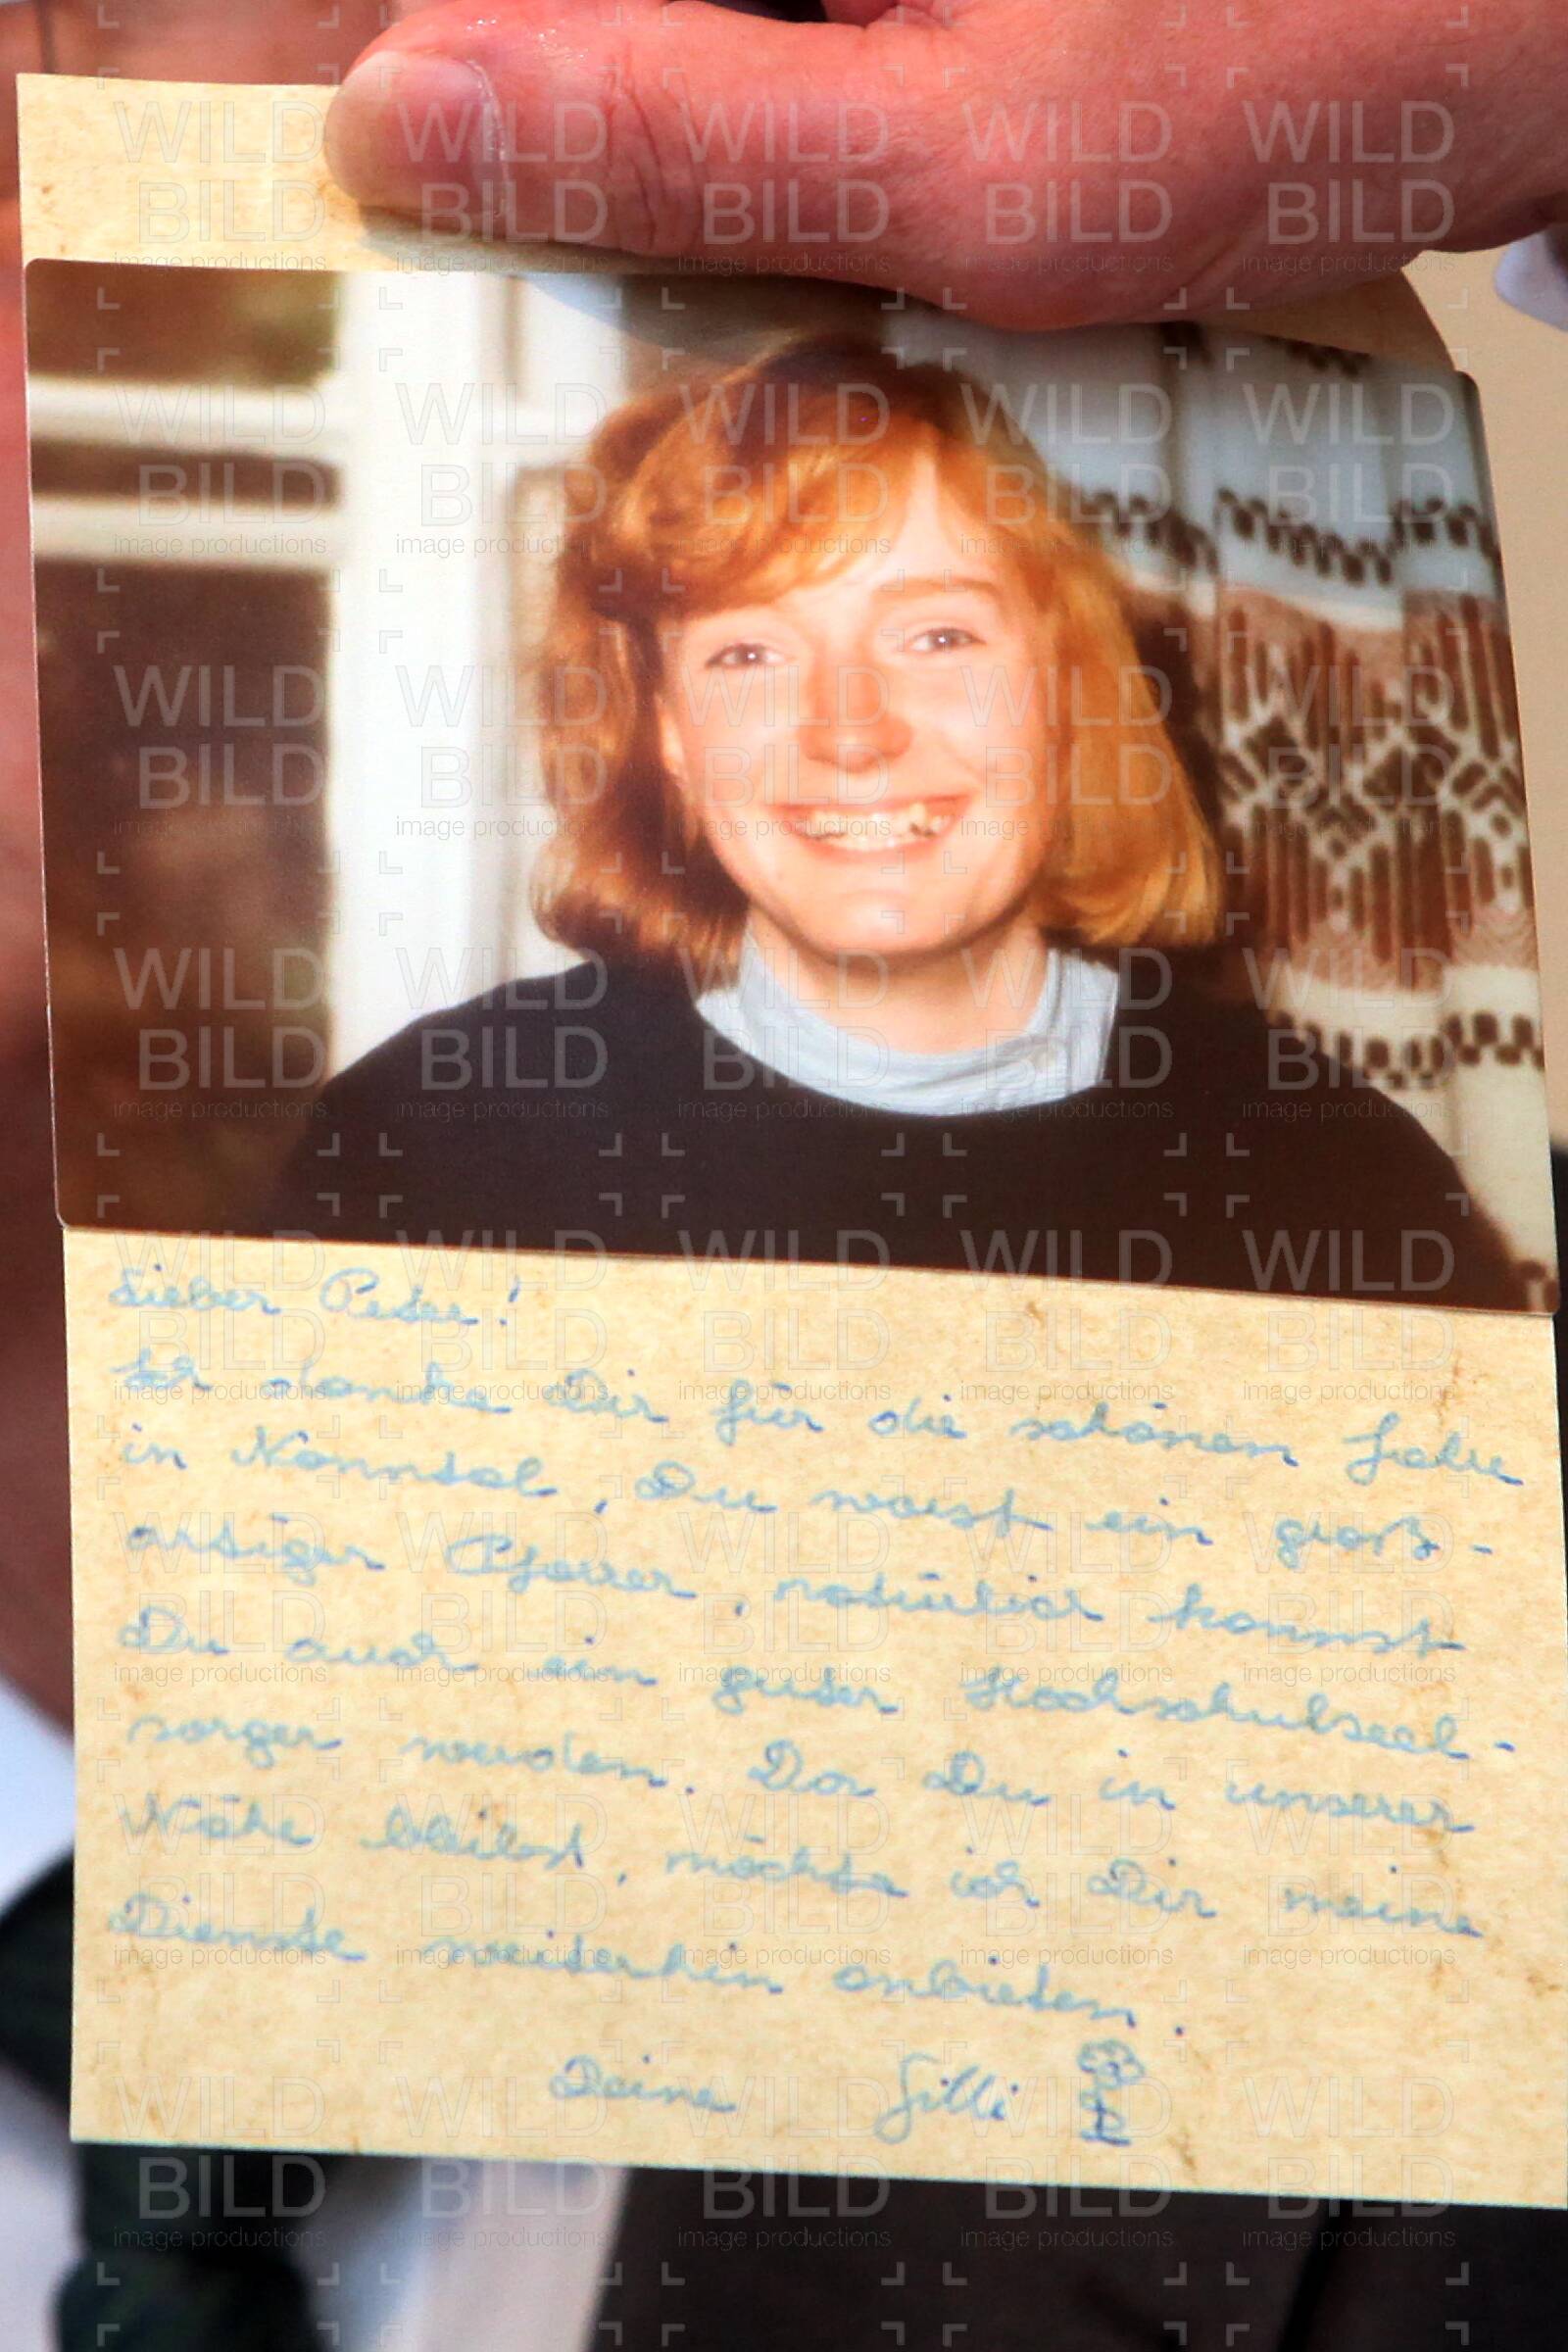 Lieber Peter!
Ich danke Dir für die schönen Jahre
in Nonntal, Du warst ein groß-
artiger Pfarrer, natürlich kannst
Du auch ein guter Hochschulseel-
sorger werden. Da Du in unserer
Nähe bleibst, möchte ich Dir meine
Dienste weiterhin anbieten.
Deine Gilli
WILD
BILD
image productions